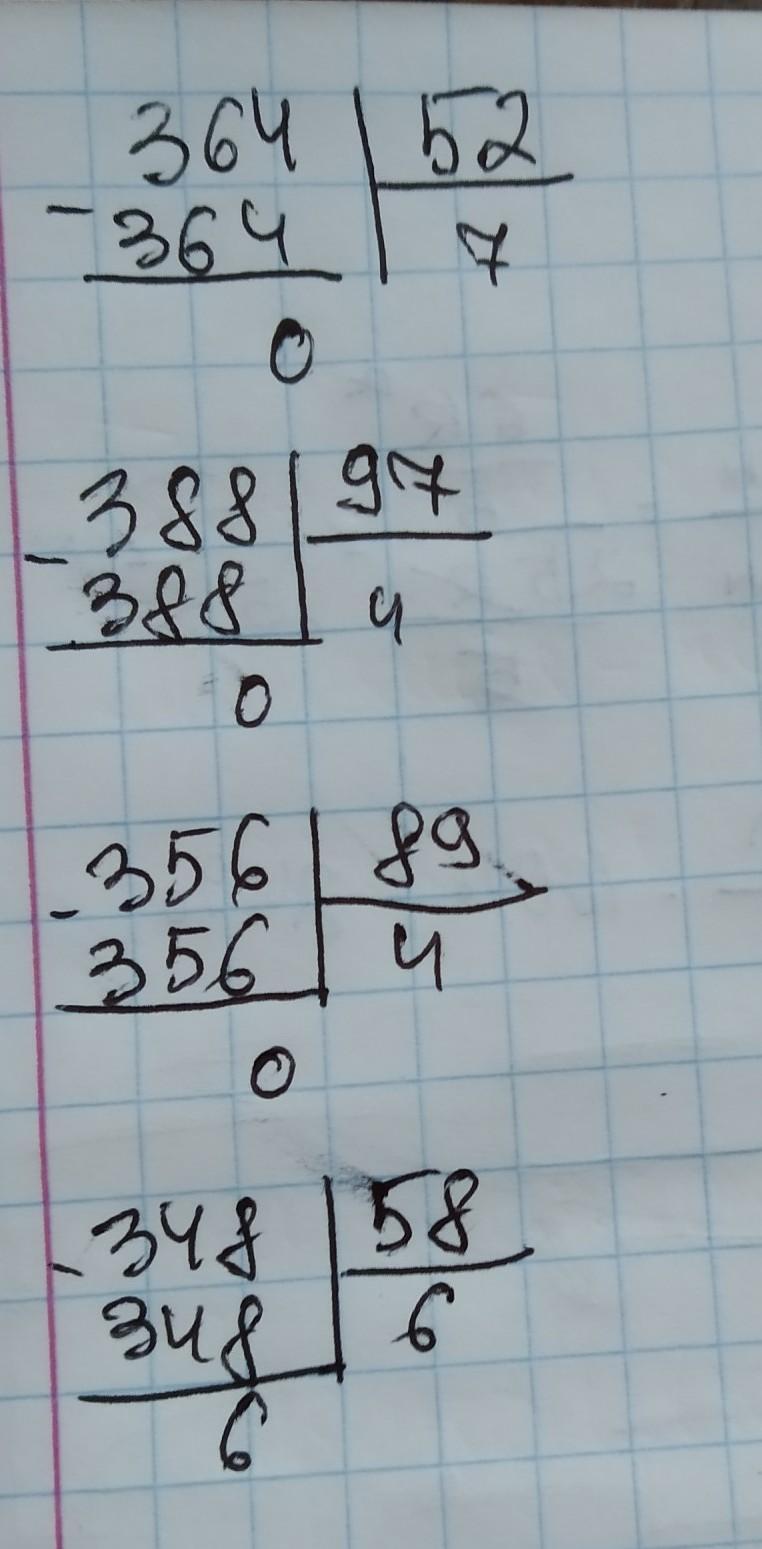 364 52
- 364 7
0
388 97
- 388 4
0
356 89
- 356 4
0
348 58
- 348 6
6